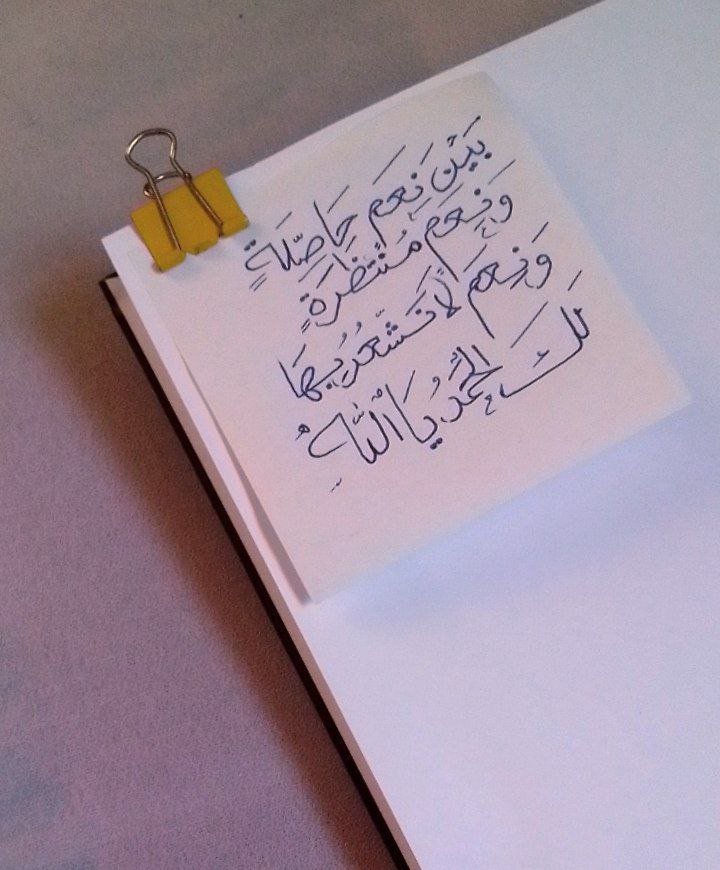 بَيْنَ نِعَمٍ حَاصِلَةٍ
وَنِعَمٍ مُنْتَظَرَةٍ
وَنِعَمٍ لَا نَشْعُرُ بِهَا
لَكَ الْحَمْدُ يَا اللَّهُ